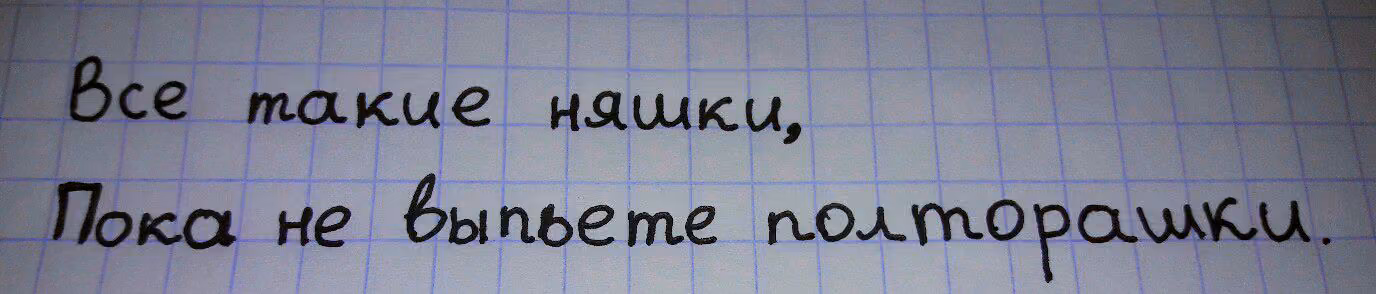 Все такие няшки,
Пока не выпьете полторашки.